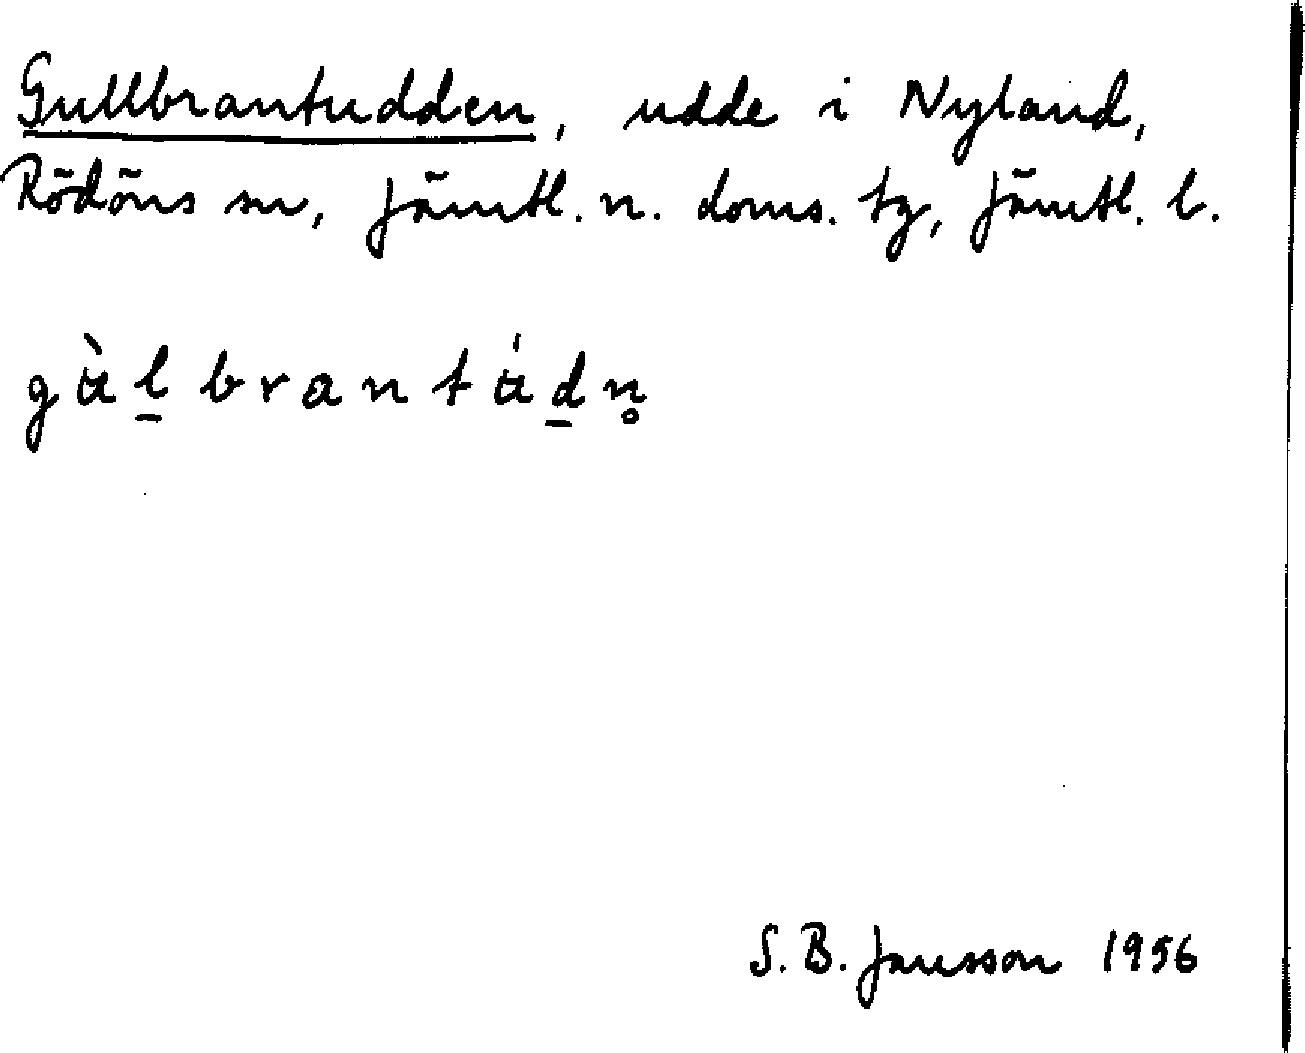 Gullbrantudden, udde i Nyland,
Rödöns sn, Jämtl. n. doms. tg, Jämtl. l.
gὰl̠brantά̍d̠n̥
S. B. Jansson 1956